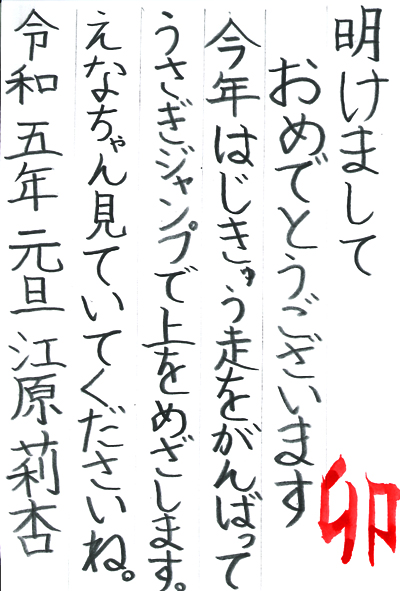 明けまして
おめでとうございます
今年はじきゅう走をがんばって
うさぎジャンプで上をめざします。
えなちゃん見ていてくださいね。
令和五年元旦江原莉杏
卯